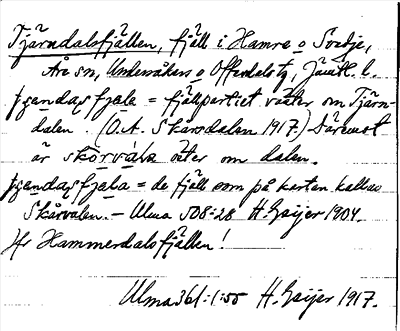 Tjärndalsfjällen, fjäll i Hamre o Svedje,
Åre sn, Undersåkers o Offerdals tg, Jämtl. l.
= fjällpartiet väster om Tjärn-
dalen. (O.A. Skarsdalen 1917.) Däremot
är skorvála väter om dalen.
= de fjäll som på kartan kallas
Skårvalen. — Ulma 508:28 H. Geijer 1904.
Jfr Hammerdalsfjällen!
Ulma 361:1:55 H. Geijer 1917.